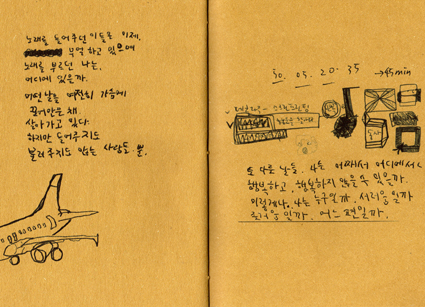 노래를 들어주던 이들은 이제,
무얼 하고 있으며
노래를 부르던 나는,
어디에 있을까.
어떤 날들 여전히 가슴에
끌어안은 채
살아가고 있다.
하지만 들어주지도
불러주지도 않는 사람들 뿐.
30. 05. 20. 35 → 45min
또 다른 날들. 나는 어째서 어디에서
행복하고, 행복하지 않을 수 있을까.
이럴 때나, 나는 누구일까. 서러움일까
즐거움일까. 어느 편일까.